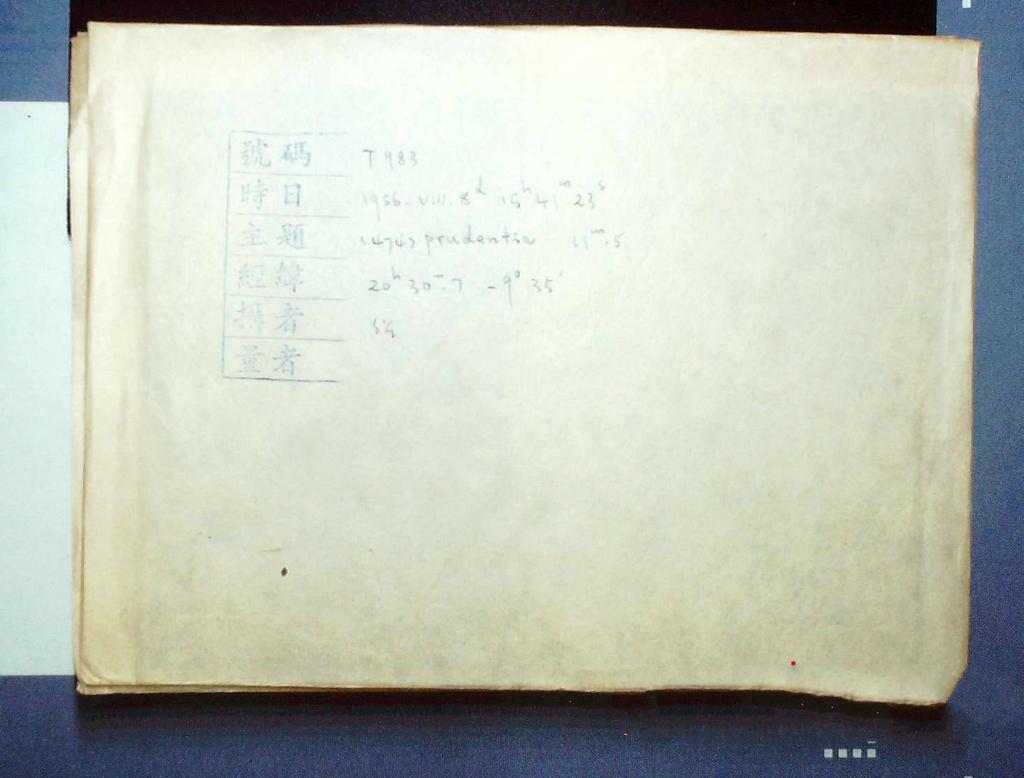 號碼 T 983
時日 1956. VIII. 8ᵈ 15ʰ 41ᵐ 23ˢ
主題 (474) prudentia 11ᵐ.5
經緯 20ʰ 30ᵐ.7 -9° 35'
攝者
量者